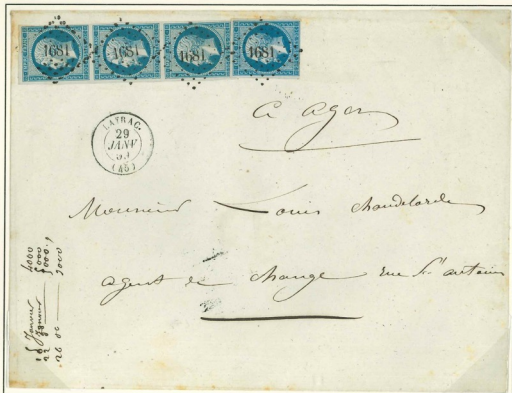 1681 1681 1681 1681
LAYRAC
29
JANV
59
(45)
a agen
Monsieur Louis Chaudelarde
agent de change rue St antoine
15 Janvier 4000
22 Janvier 5000
26 do 3000